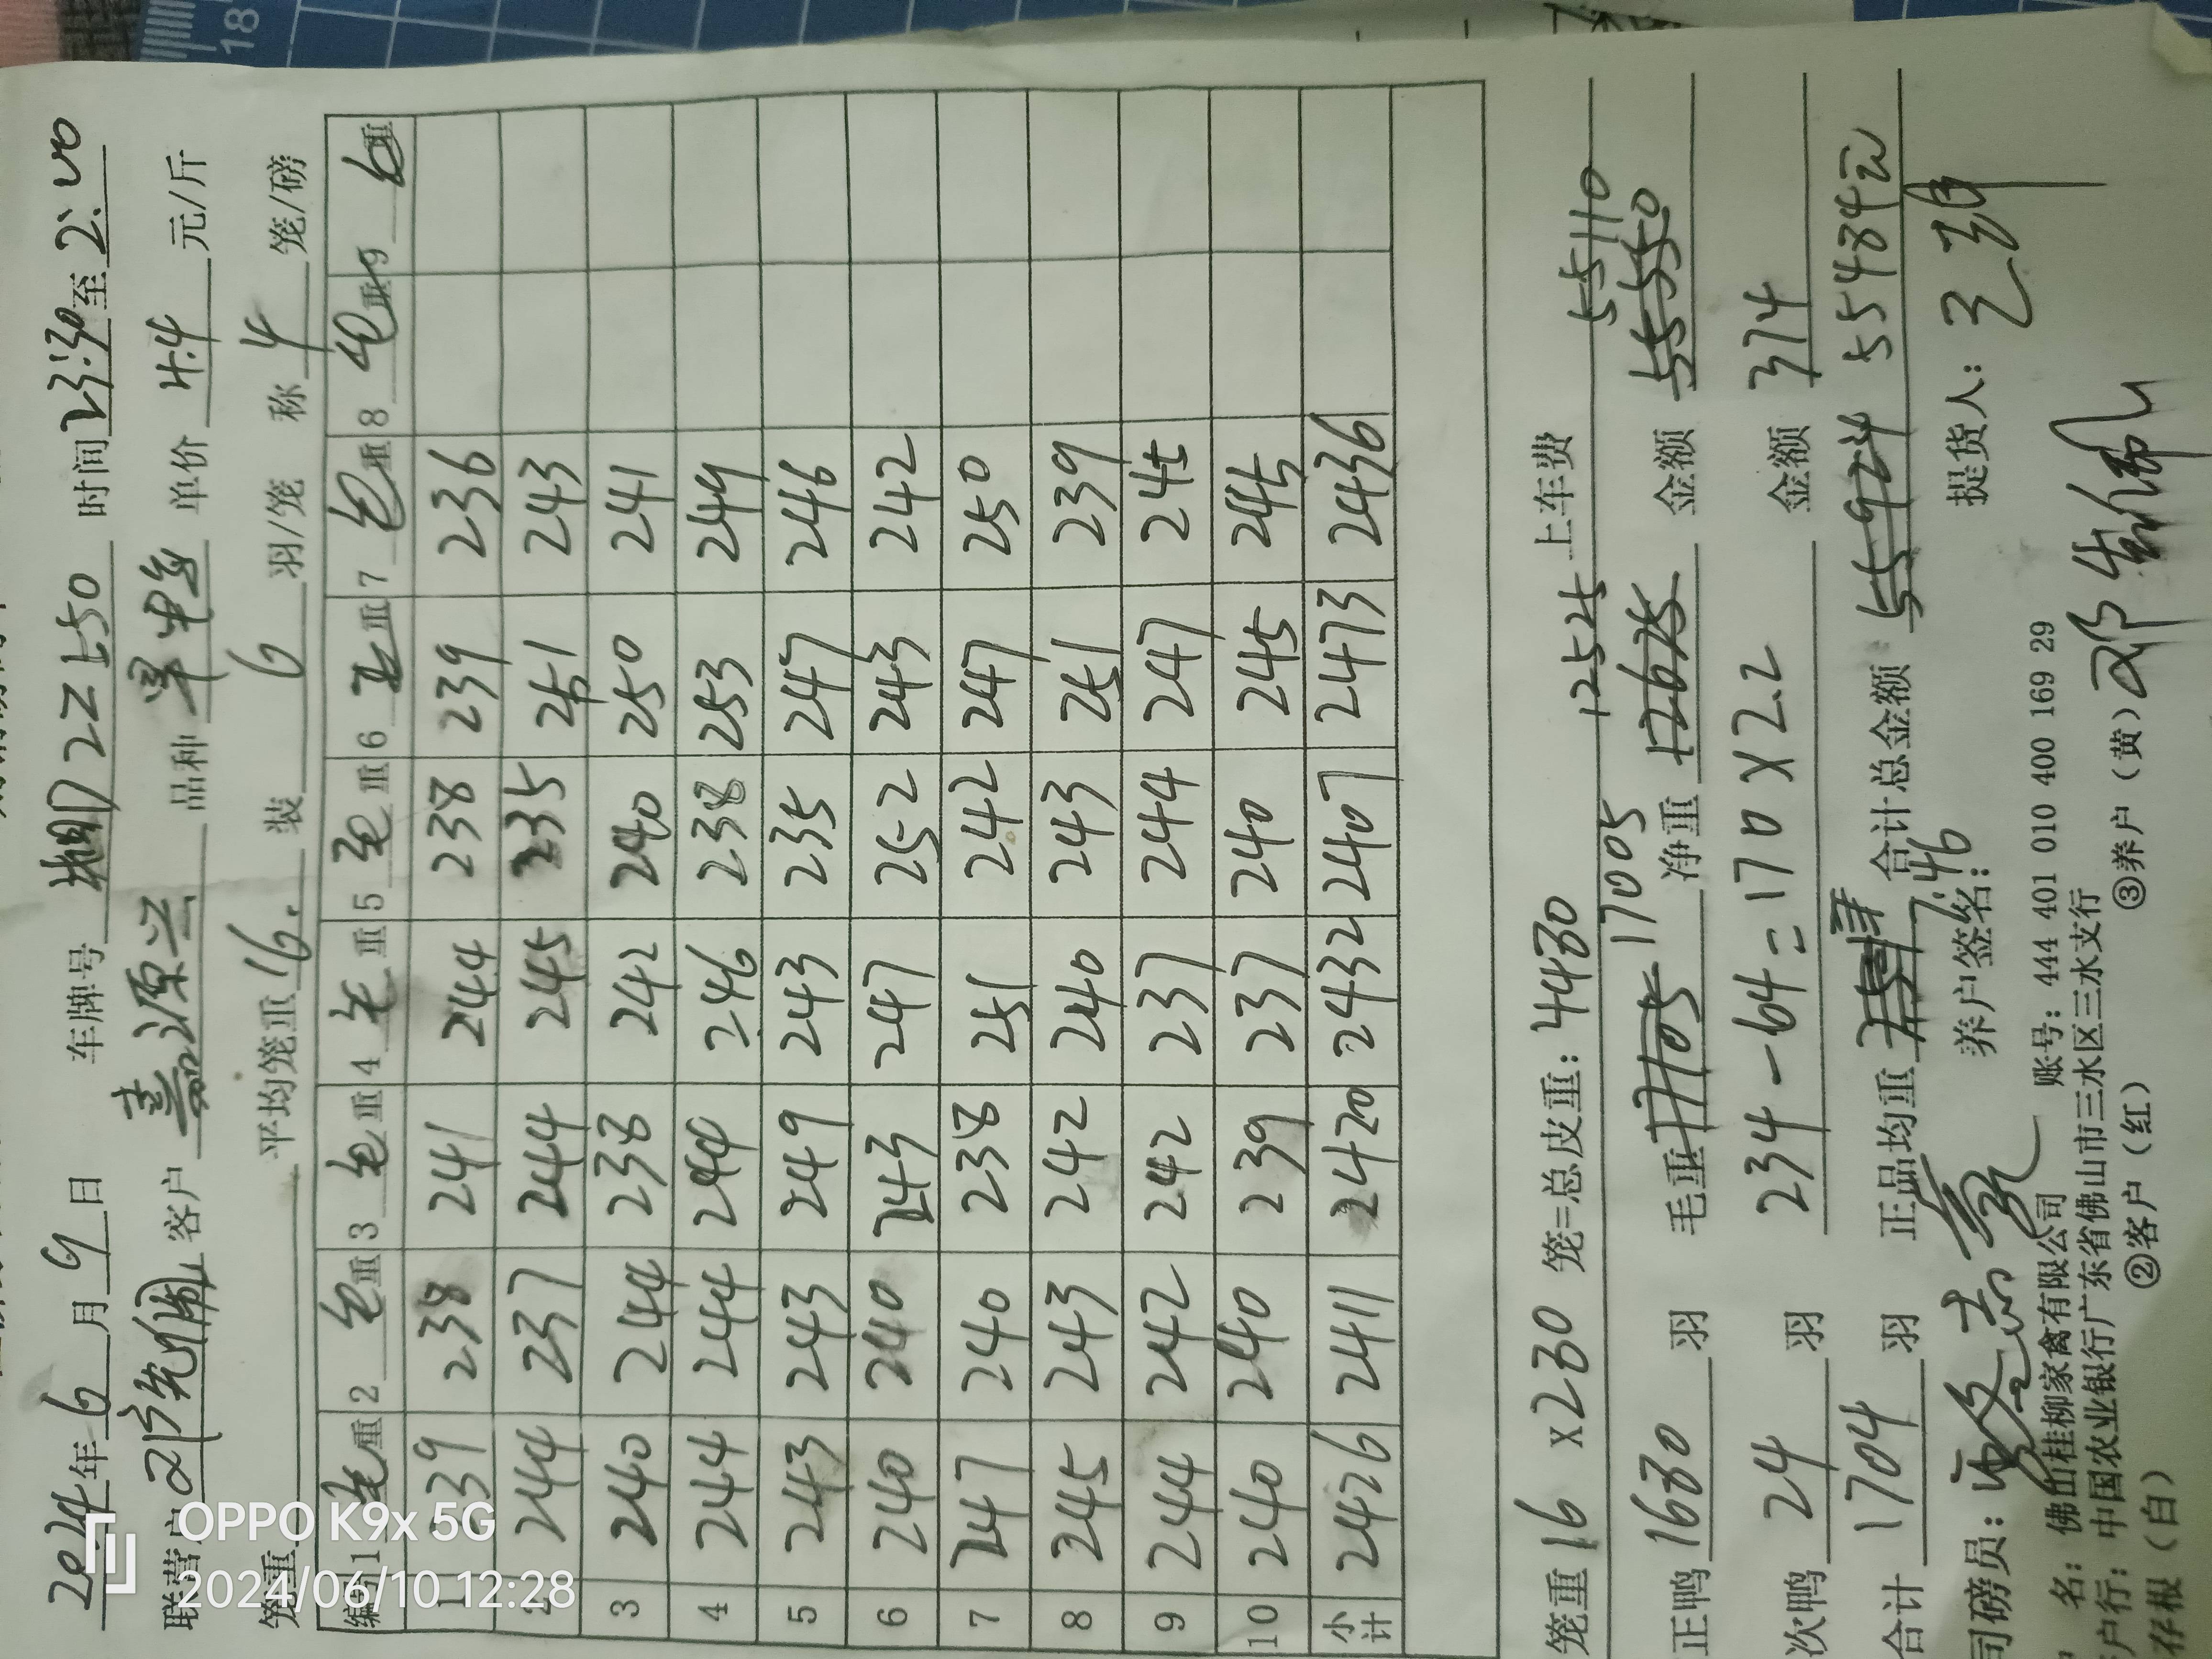 2024年6月9日 车牌号 湘 时间23:30至2:00
联营户 客户 嘉源兴 品种 单价4.4元/斤
笼重 平均笼重16. 装6羽/笼 称4笼/磅
编号 1毛重 2毛重 3毛重 4毛重 5毛重 6毛重 7毛重 8毛重 9毛重
1 239 238 241 244 238 239 236
2 244 237 244 245 235 251 243
3 240 244 238 242 240 250 241
4 244 244 244 246 238 253 249
5 243 243 249 243 235 247 246
6 240 240 243 247 252 243 242
7 247 240 238 251 242 247 250
8 245 243 242 240 243 251 239
9 244 242 242 237 244 247 245
10 240 240 239 237 240 245 245
小计 2426 2411 2420 2432 2407 2473 2436
笼重16 x280 笼=总皮重:4480 上车费
17005 12525 55110
正鸭1680羽 毛重 净重 金额
次鸭24羽 234-64=170x2.2 金额374
合计1704羽 正品均重 7.46 合计总金额 55924 55484元
司磅员: 养户签名: 提货人:
名:佛山桂柳家禽有限公司 账号:444 401 010 400 169 29
户行:中国农业银行广东省佛山市三水区三水支行
存根(白) ②客户(红) ③养户(黄)
OPPO K9x 5G
2024/06/10 12:28